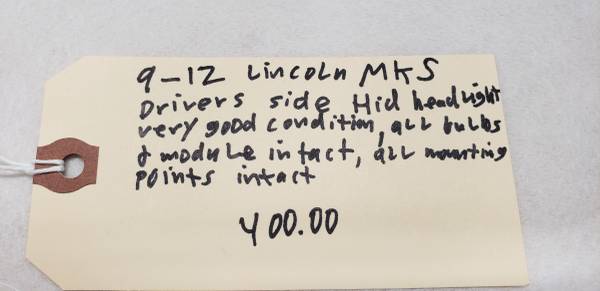 9-12 Lincoln MKS
Drivers side Hid headlight
very good condition, all bulbs
& module intact, all mounting
points intact
400.00